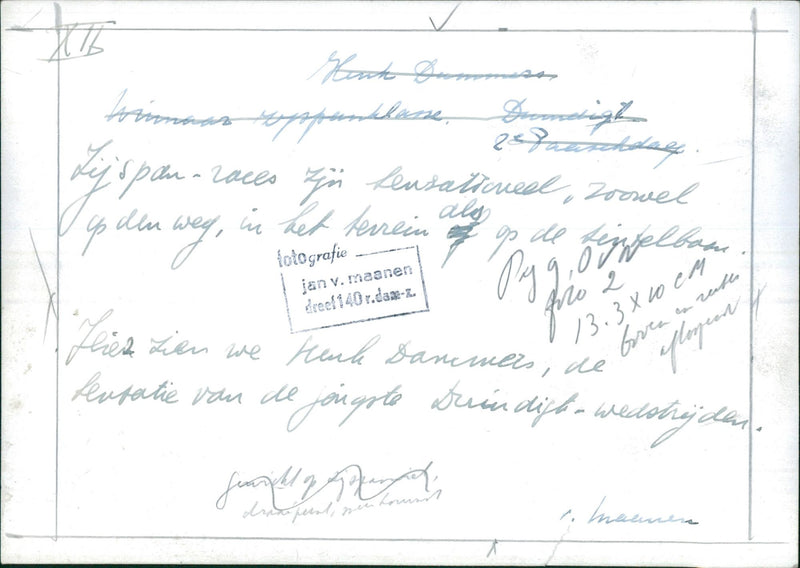 XII
Henk Dammers
Winnaar zijspanklasse. Duindigt
2e Paaschdag.
Zijspan-races zijn sensationeel, zoowel
op den weg, in het terrein als op de sintelbaan.
fotografie
jan v. maanen
dreef 140 r.dam-z.
Pag, OVN
foto 2
13.3 x 10 CM
boven en rechts
aflopend
Hier zien we Henk Dammers, de
sensatie van de jongste Duindigt-wedstrijden.
v. Maanen